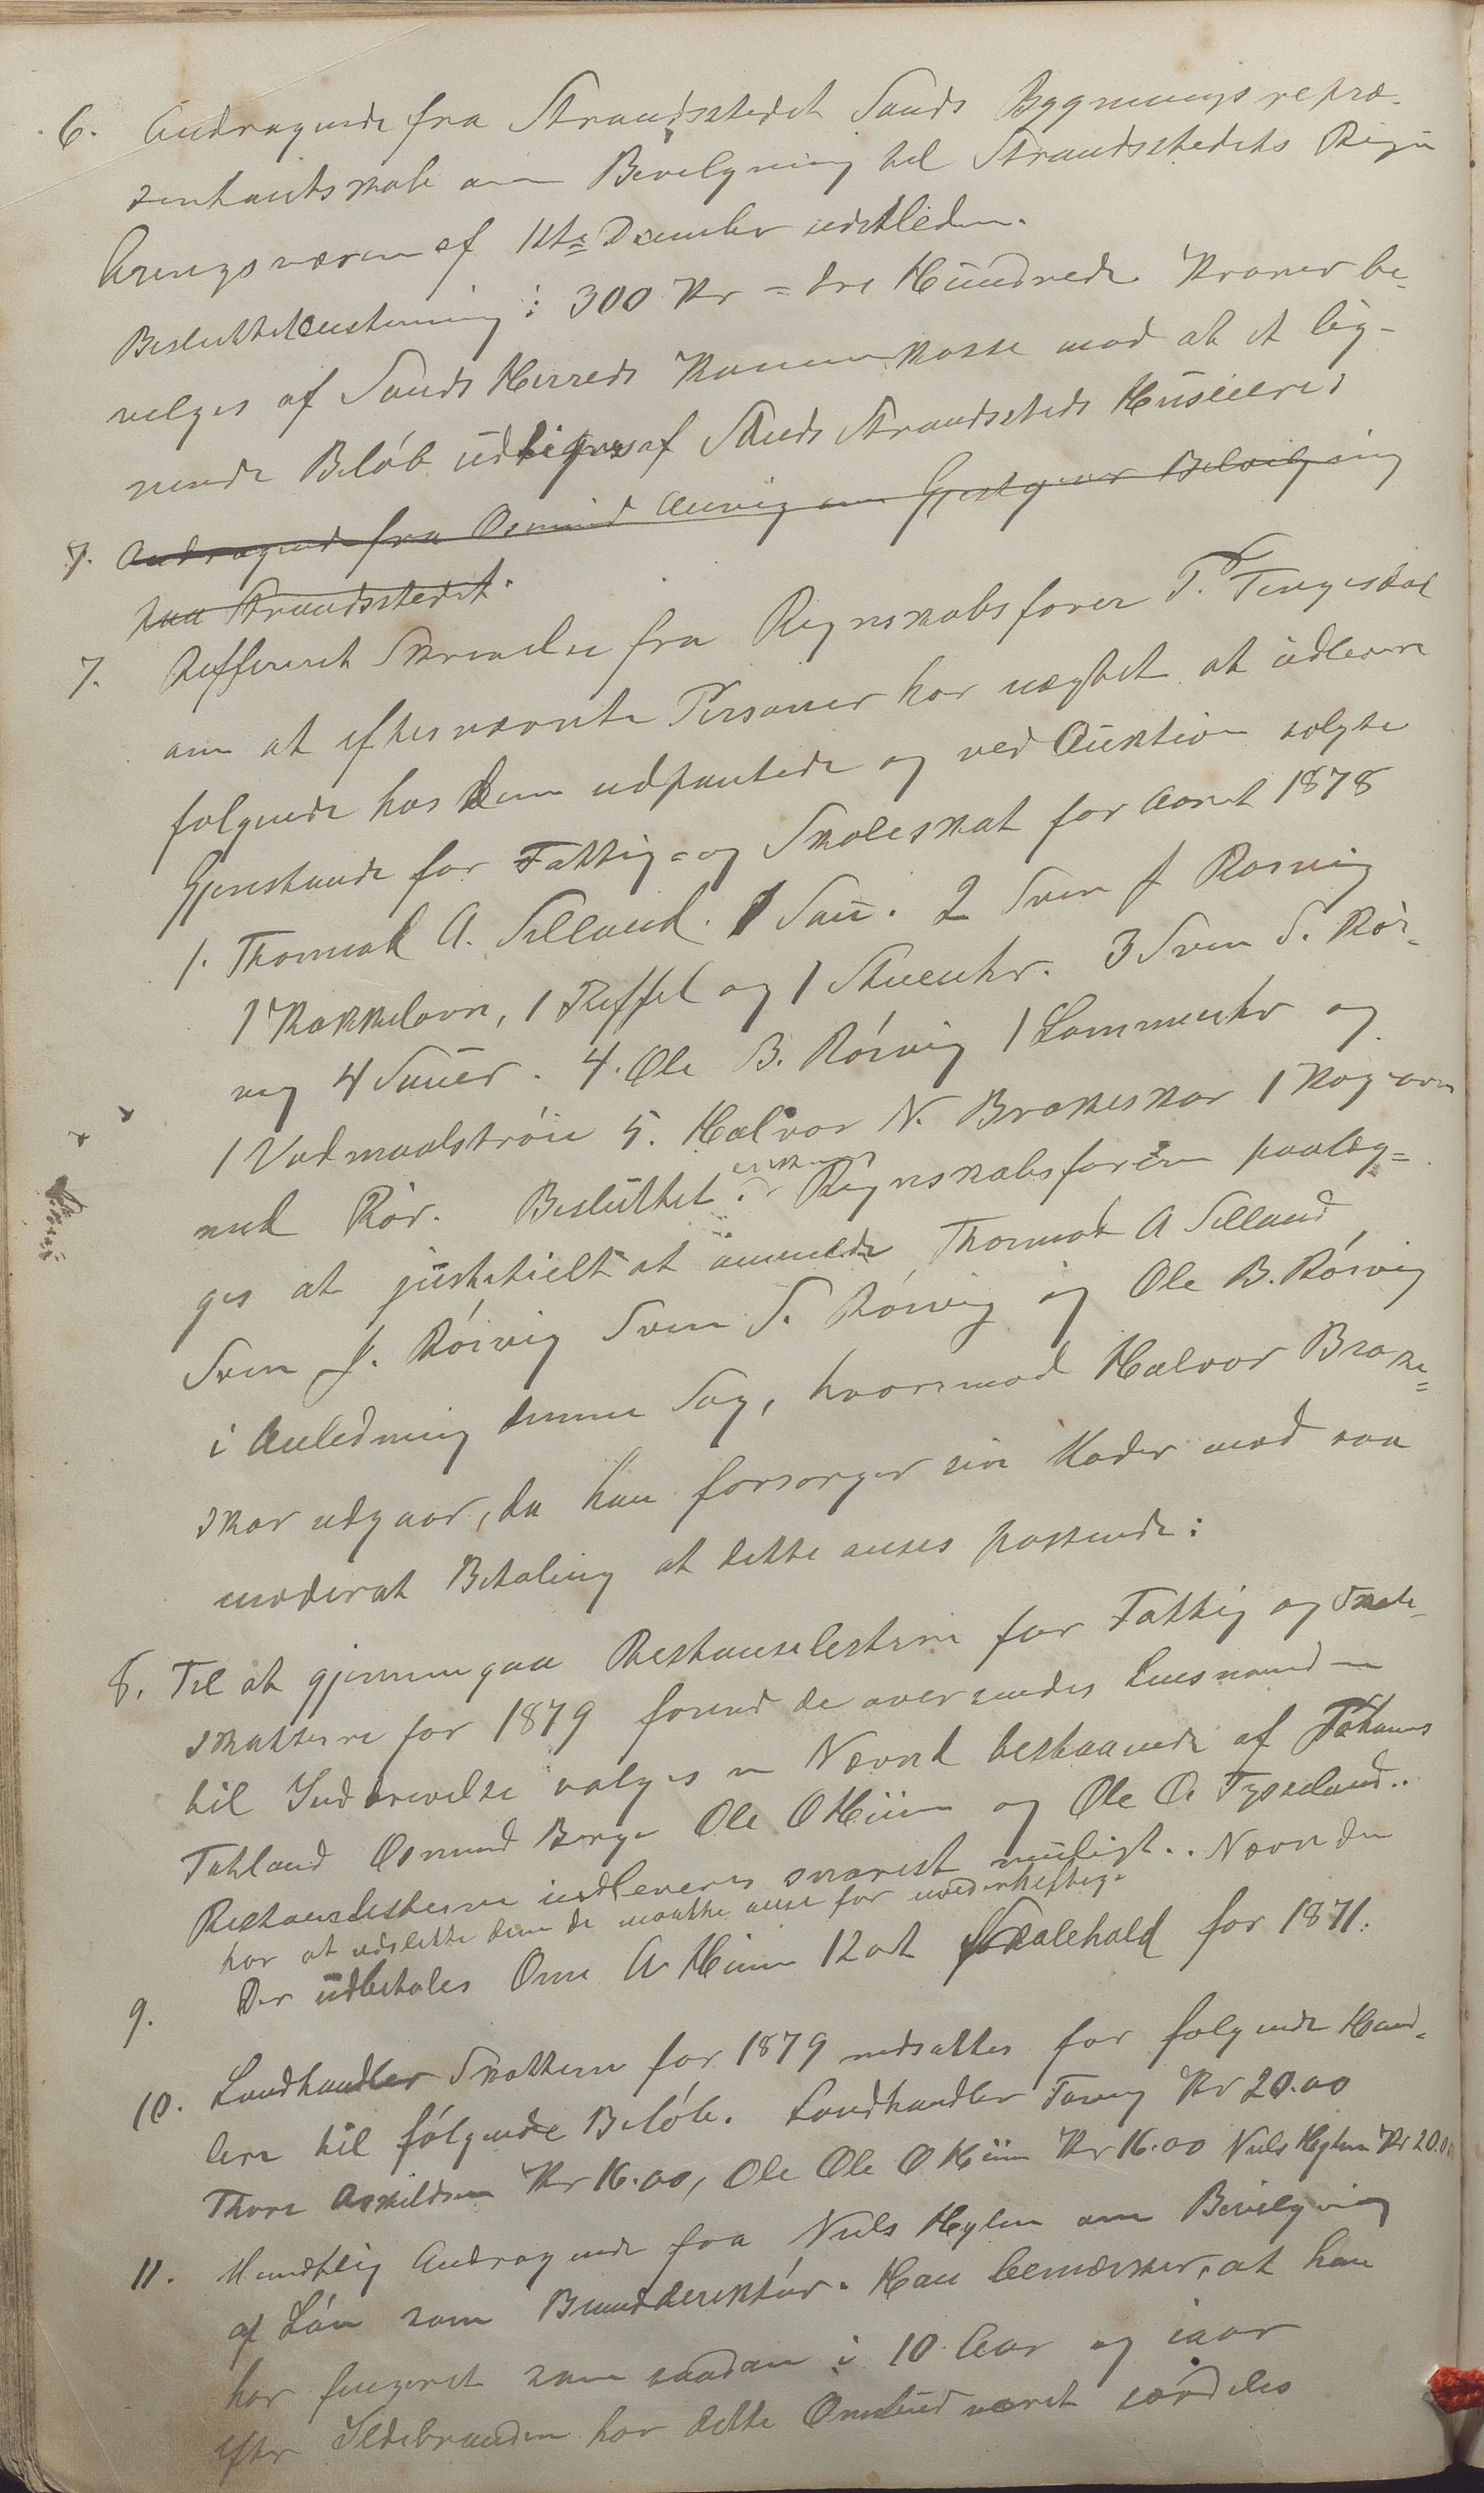 6. Andragende fra Strandstedet Sands Bygningsrepræ-
sentantskab om Bevilgning til Strandstedets Regu
leringsvæsen af 11te December sidstleden.
Besluttet enstemmig: 300 Kr = tre Hundrede Kroner be-
vilges af Sands Herreds Kommunekasse mod at et lig-
nende Beløb udlignes af Sands Strandsteds Huseiere:
7. Andragende fra Osmund Anvig om Gjestgiver Bevilgning
paa Strandstedet.
7. Refereret Skrivelse fra Regnskabsfører T. Tengesdal
om at efternævnte Personer har nægtet at udlevere
følgende hos dem udpantede og ved Auktion solgte
Gjenstande for Fattig- og Skoleskat for Aaret 1878
1. Thormod A. Selland 1 Sau. 2 Sven J Rørvig
1 Kakkelovn, 1 Riffel og 1 Stueuhr. 3 Sven S. Rør-
vig 4 Sauer. 4. Ole B. Rørvig 1 Lommeuhr og
1 Vadmaalstrøie 5. Halvor N. Brakeskar 1 Kogeovn
med Rør. Besluttet: Regnskabsføreren paalæg-
ges at justitielt at anmelde Thormod A Selland
Sven J. Rørvig Sven S. Rørvig og Ole B. Rørvig
i Anledning denne Sag, hvorimod Halvor Brake-
skar udgaar, da han forsørger sin Moder mod saa
moderat Betaling at dette anses passende:
8. Til at gjennemgaa Restanselisterne for Fattig og Skole-
skatterne for 1879 forend de oversendes Lensmanden
til Inddrivelse valges en Nævnd bestaaende af Johannes
Tukland Osmund Berge Ole O Hiim og Ole O. Tysseland..
Restanselisterne indleveres snarest muligt.. Nævnden
har at udslette dem de maatte anse for uvederheftige
9. Der udbetales Orm A Hiim 12 at Skolehold for 1871.
10. Landhandler Skatten for 1879 nedsættes for følgende Hand-
lere til følgende Beløb. Landhandler Kr 20.00
Thore Askildsen Kr 16.00, Ole Ole O Hiim Kr 16.00 Niels Hylen Kr 20.00
11. Mundtlig Andragende fra Niels Hylen om Bevilgning
af Løn som Branddirektør. Han bemærker, at han
har fungeret som saadan i 10 Aar og iaar
efter Ildebranden har dette Ombud været særdeles